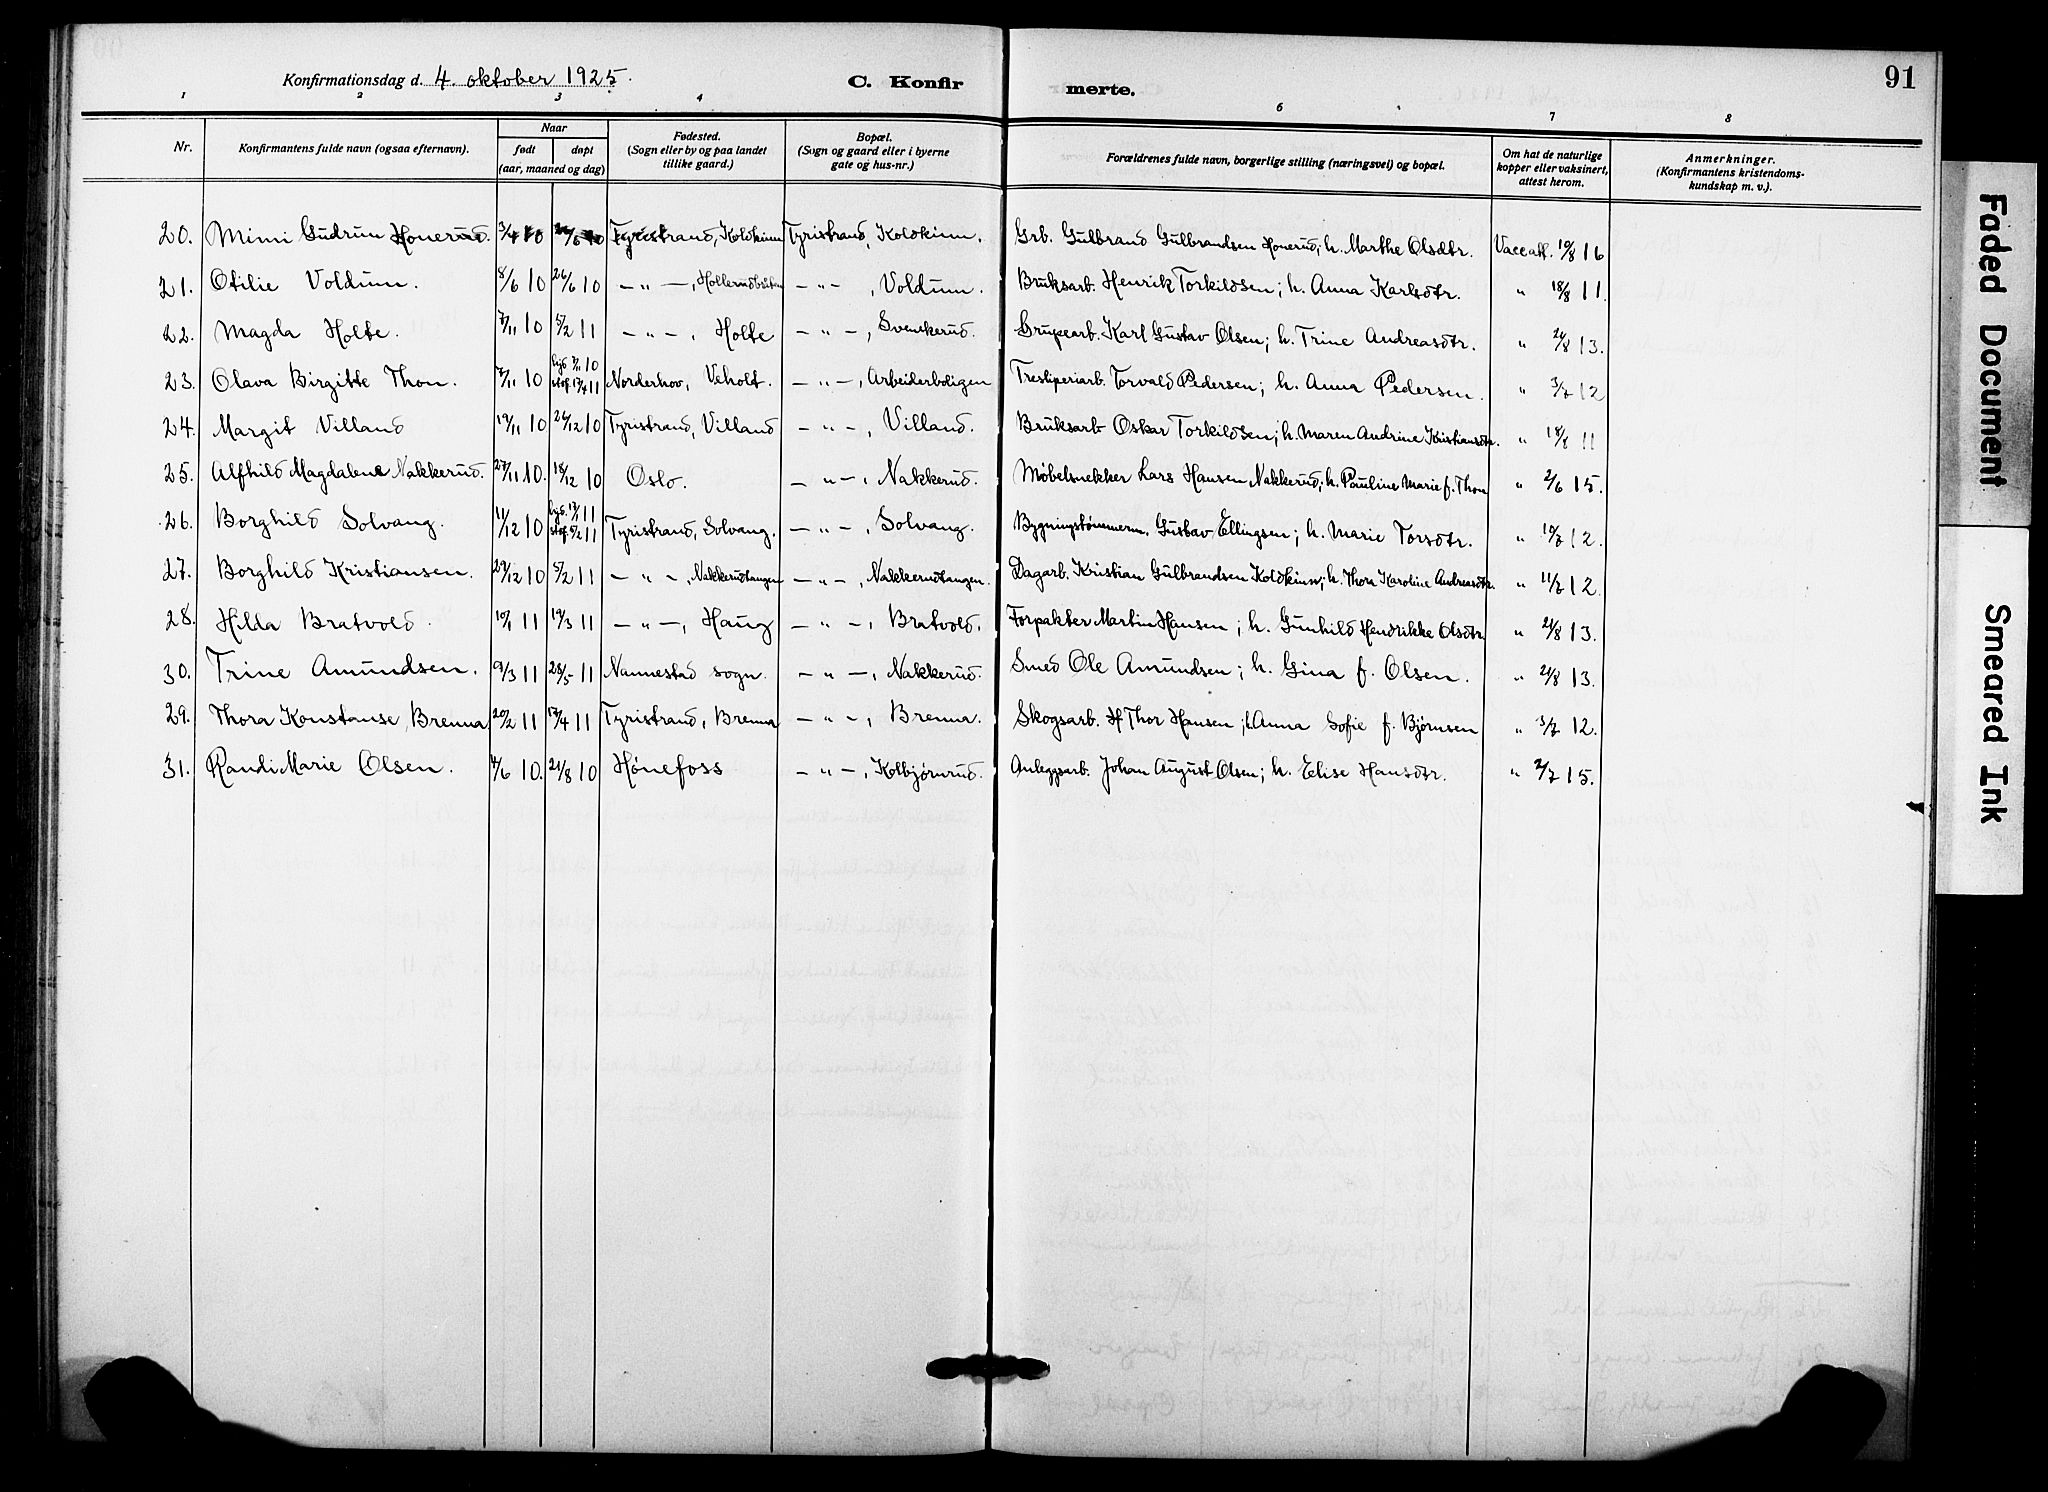 91
Konfirmationsdag d. 4. oktober 1925.
C. Konfirmerte.
1 2 3 4 6 7 8
Nr. | Konfirmantens fulde navn (ogsaa efternavn). | Naar født døpt (aar, maaned og dag) | Fødested. (Sogn eller by og paa landet tillike gaard.) | Bopæl. (Sogn og gaard eller i byerne gate og hus-nr.) | Forældrenes fulde navn, borgerlige stilling (næringsvei) og bopæl. | Om hat de naturlige kopper eller vaksinert, attest herom. | Anmerkninger. (Konfirmantens kristendoms-kundskap m. v.).
20. Mimi Gudrun Honerud. 3/4 10 /6 10 Tyristrand, Koldkinn Tyristrand, Koldkinn. Grb. Gulbrand Gulbrandsen Honerud; h. Marthe Olsdtr. Vacc att. 19/8 16
21. Otilie Voldum. 8/6 10 26/6 10 — " —, Hollerudbråten — " —, Voldum. Bruksarb. Henrik Torkildsen; h. Anna Karlsdtr. " 18/8 11.
22. Magda Holte. 7/11 10 5/2 11 — " —, Holte — " —, Svenkerud. Grupearb. Karl Gustav Olsen; h. Trine Andreasdtr. " 24/8 13.
23. Olava Birgitte Thon. 7/11 10 hjd. 7/11 10 stof. 17/4 11 Norderhov, Veholt. — " —, Arbeiderboligen Tresliperiarb. Torvald Pedersen; h. Anna Pedersen. " 3/7 12
24. Margit Villand 19/11 10 26/12 10 Tyristrand, Villand — " —, Villand. Bruksarb. Oskar Torkildsen; h. Maren Andrine Kristiansdtr. " 18/8 11
25. Alfhild Magdalene Nakkerud. 27/11 10. 18/12 10 Oslo. — " —, Nakkerud. Møbelsnekker Lars Hansen Nakkerud; h. Pauline Marie f. Thon " 2/6 15.
26. Borghild Solvang. 11/12 10 hjd. 17/1 11 stof. 5/2 11 Tyristrand, Solvang. — " —, Solvang. Bygningstømmerm. Gustav Ellingsen; h. Marie Torsdtr. " 10/7 12.
27. Borghild Kristiansen. 29/12 10 5/2 11 — " —, Nakkerudtangen — " —, Nakkerudtangen. Dagarb. Kristian Gulbrandsen Koldkinn; h. Thora Karoline Andreasdtr. " 11/7 12.
28. Hilda Bratvold. 10/1 11 19/3 11 — " —, Haug — " —, Bratvold. Forpakter Martin Hansen; h. Gunhild Hendrikke Olsdtr. " 21/8 13.
30. Trine Amundsen. 9/3 11 28/5 11 Nannestad sogn. — " —, Nakkerud. Smed Ole Amundsen; h. Gina f. Olsen. " 21/8 13.
29. Thora Konstanse Brenna 20/2 11 17/4 11 Tyristrand, Brenna — " —, Brenna. Skogsarb. H Thor Hansen; h. Anna Sofie f. Bjørnsen " 3/7 12.
31. Randi Marie Olsen. 4/6 10. 21/8 10 Hønefoss — " —, Kolbjørnrud. Anleggsarb. Johan August Olsen; h. Elise Hansdtr. " 2/7 15.
Faded Document
Smeared Ink